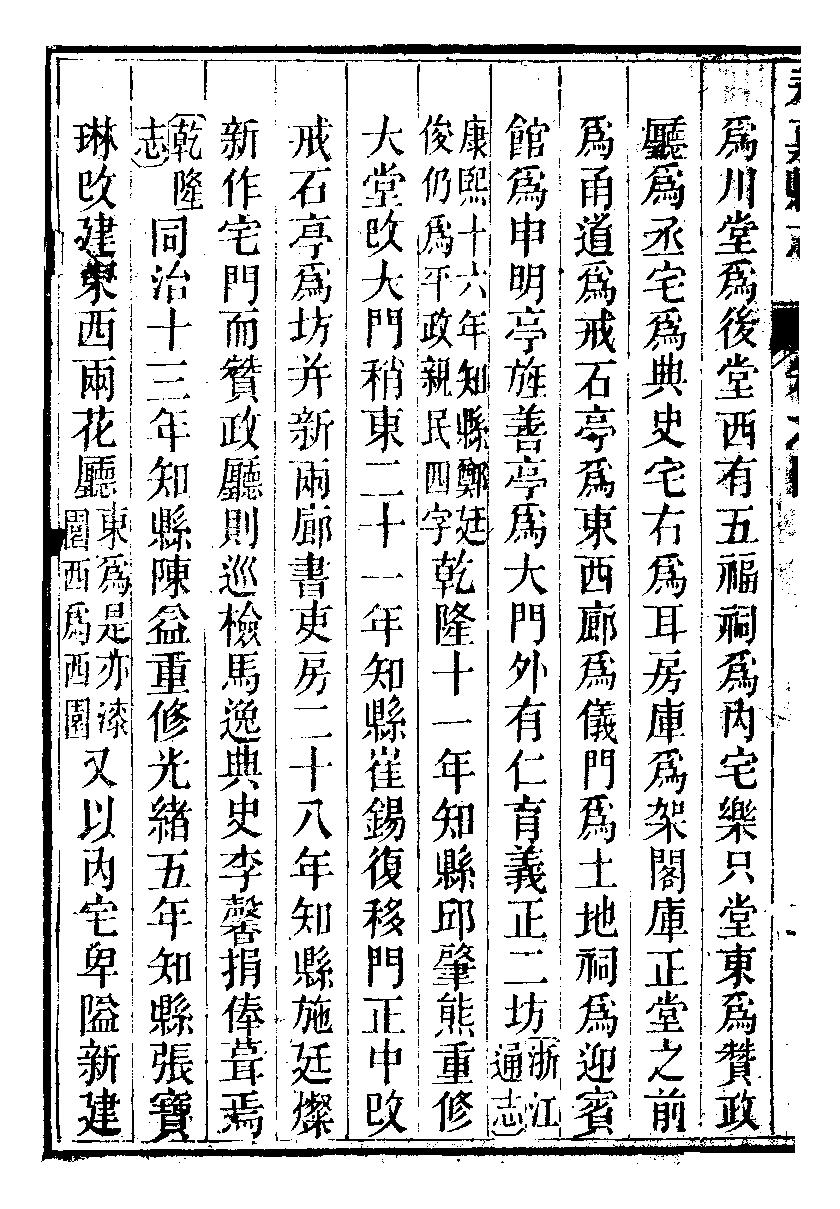 永嘉縣志
爲川堂爲後堂西有五福祠爲內宅樂只堂東爲贊政
廳爲丞宅爲典史宅右爲耳房庫爲架閣庫正堂之前
爲甬道爲戒石亭爲東西廊爲儀門爲土地祠爲迎賓
館爲申明亭旌善亭爲大門外有仁育義正二坊浙江
通志
康熙十六年知縣鄭廷
俊仍爲平政親民四字乾隆十一年知縣邱肇熊重修
大堂改大門稍東二十一年知縣崔錫復移門正中改
戒石亭爲坊并新兩廊書吏房二十八年知縣施廷燦
新作宅門而贊政廳則巡檢馬逸典史李馨捐俸葺焉
乾隆
志同治十三年知縣陳益重修光緒五年知縣張寶
琳改建東西兩花廳東爲是亦漆
園西爲西園又以內宅卑隘新建